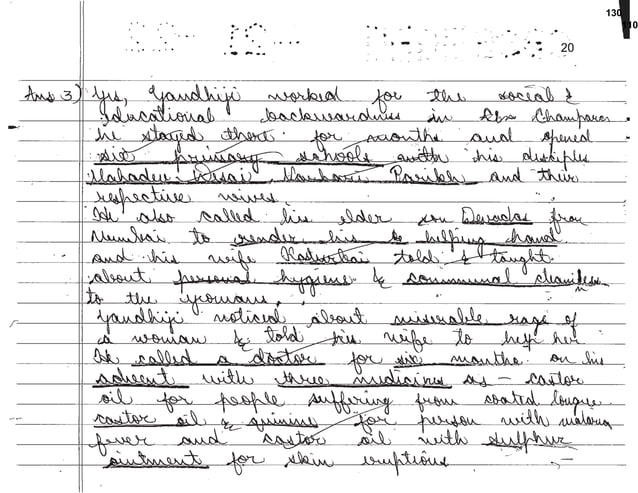 130
110
20
Ans 3) Yes, Gandhiji worked for the social &
educational backwardness in Champaran
he stayed there for months and opened
six primary schools with his disciples
Mahadev Desai, Narhari Parikh and their
respective wives.
He also called his elder son Devadas from
Mumbai to render his helping hand
and his wife Kasturbai told & taught
about personal hygiene & communal cleanliness
to the womans.
Gandhiji noticed about miserable rags of
a woman & told his wife to help her
He called a doctor for six months on his
advent with three medicines as – castor
oil for people suffering from coated tongue
castor oil & quinine for person with malaria
fever and castor oil with sulphur
ointment for skin eruptions